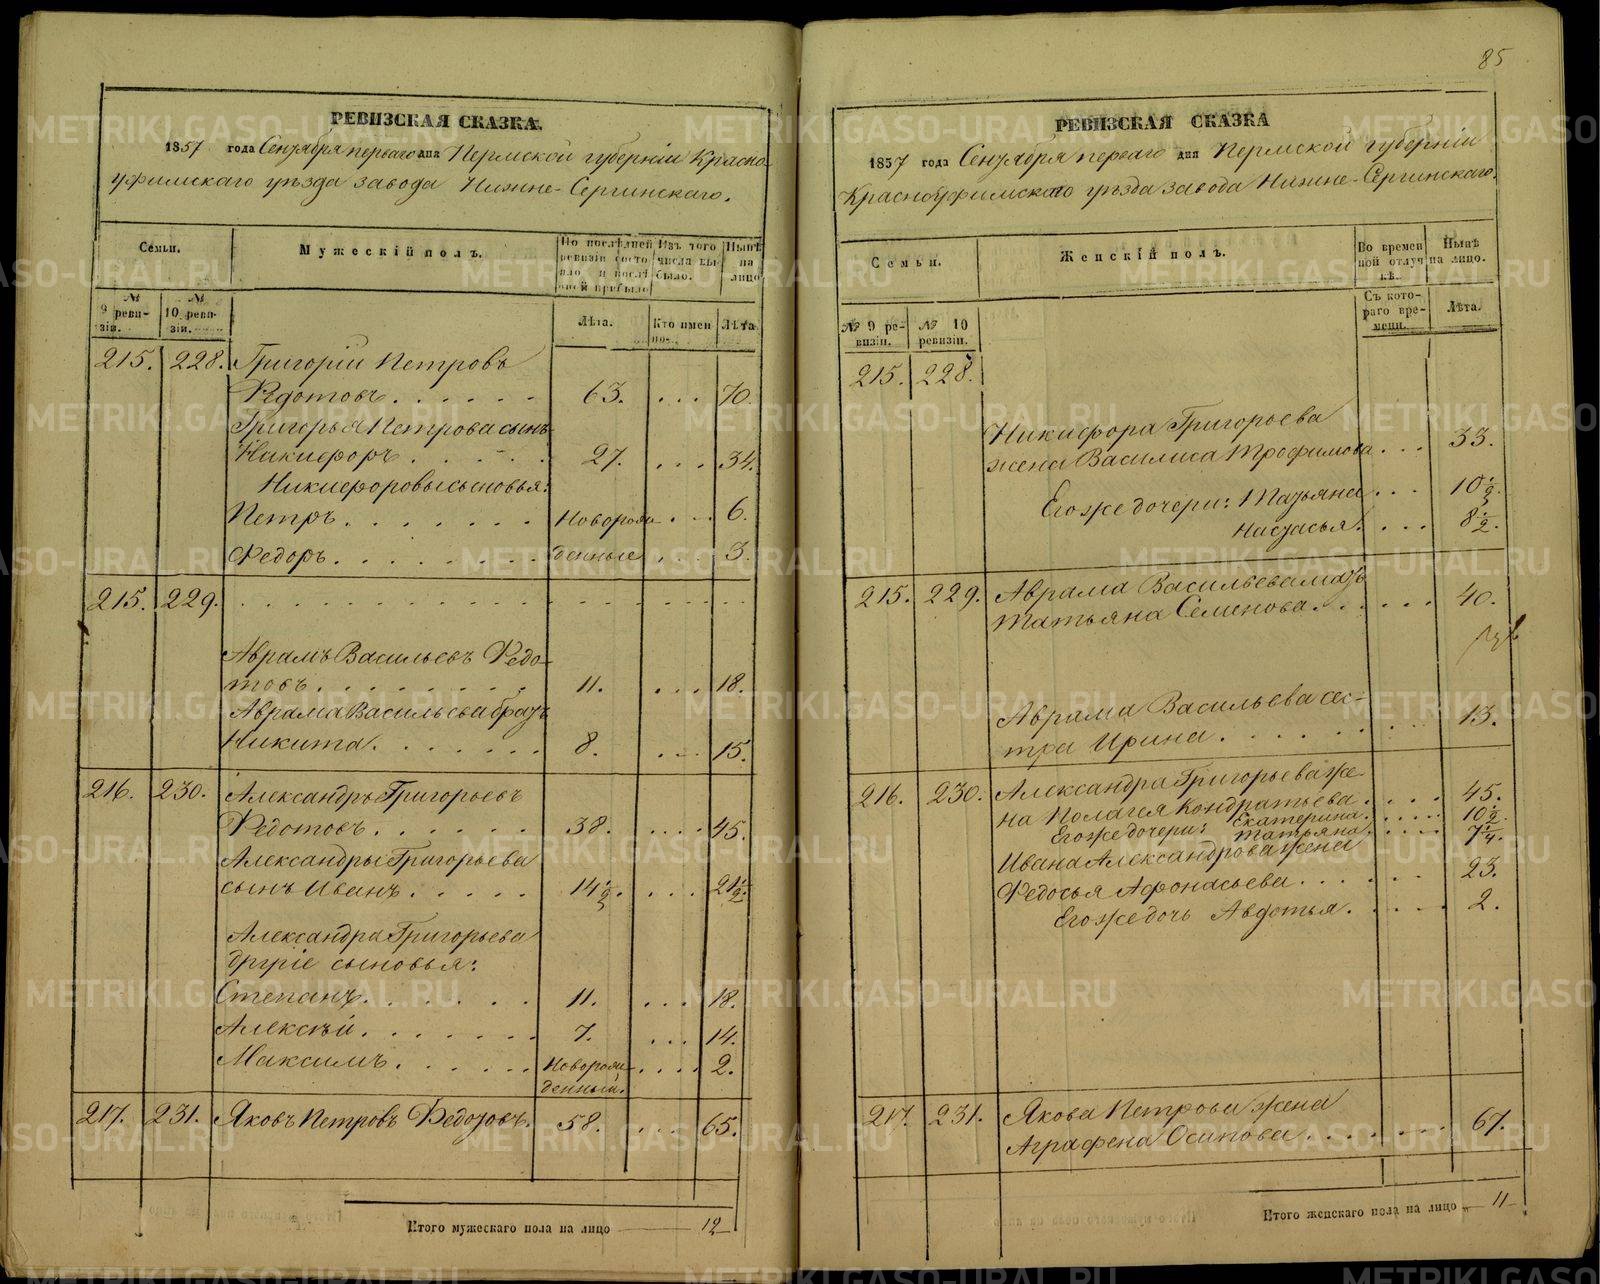 85
РЕВИЗСКАЯ СКАЗКА.
1857 года Сентября перваго дня Пермской губерніи Красно-
уфимскаго уѣзда завода Нижне-Сергинскаго.
Семьи.
Мужескій полъ.
По послѣдней ревизіи состояло и послѣ оной прибыло
Изъ того числа выбыло.
Нынѣ на лицо
№ 9 ревизіи.
№ 10 ревизіи.
Лѣта.
Кто имен
но.
Лѣта.
215. 228. Григорій Петровъ
Федотовъ . . . . . . 63. . . . 70.
Григорья Петрова сынъ
Никифоръ . . . . . 27. . . . 34.
Никифоровы сыновья:
Петръ . . . . . . . Новорож- . . . 6.
Федоръ . . . . . . . . денные . . . 3.
215. 229. . . . . . . . . . . . . . . . . . .
Аврамъ Васильевъ Федо-
товъ . . . . . . . . . 11. . . . 18.
Аврама Васильева братъ
Никита . . . . . . . 8. . . . 15.
216. 230. Александръ Григорьевъ
Федотовъ . . . . . . 38. . . . . 45.
Александры Григорьева
сынъ Иванъ . . . . . 14½. . . . 21½.
Александра Григорьева
другіе сыновья:
Степанъ . . . . . . 11. . . . 18.
Алексѣй . . . . . . . 7. . . . 14.
Максимъ . . . . . . Новорож- . . . . 2.
денный.
217. 231. Яковъ Петровъ Федотовъ. 58. . . . 65.
Итого мужескаго пола на лицо 12
РЕВИЗСКАЯ СКАЗКА
1857 года Сентября перваго дня Пермской губерніи
Красноуфимскаго уѣзда завода Нижне-Сергинскаго.
Семьи.
Женскій полъ.
Во времен
ной отлуч
кѣ.
Нынѣ
на лицо.
№ 9 ре-
визіи.
№ 10
ревизіи.
Съ кото-
раго вре-
мени.
Лѣта.
215. 228.
Никифора Григорьева
жена Василиса Трофимова . . . 33.
Его же дочери: Татьяна . . . 10½.
Настасья. . . . 8½.
215. 229. Аврама Васильева мать
Татьяна Семенова . . . . . . 40.
Аврама Васильева сес-
тра Ирина . . . . . . . . . 13.
216. 230. Александра Григорьева же-
на Полагея Кондратьева . . . . 45.
Его же дочери: Екатерина . . . . . 10½.
Татьяна . . . . . 7¼.
Ивана Александрова жена
Федосья Афонасьева . . . . . . 23.
Его же дочь Авдотья . . . . . 2.
217. 231. Якова Петрова жена
Аграфена Осипова . . . . . . . . 67.
Итого женскаго пола на лицо 11
METRIKI.GASO-URAL.RU